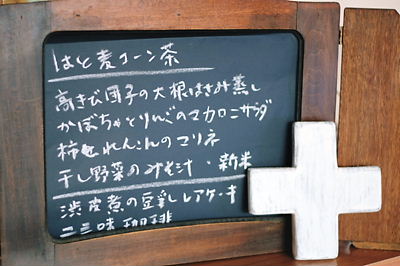 はと麦コーン茶
高きび団子の大根はさみ蒸し
かぼちゃとりんごのマカロニサラダ
柿とれんこんのマリネ
干し野菜のみそ汁・新米
渋皮煮の豆乳レアケーキ
二三味珈琲